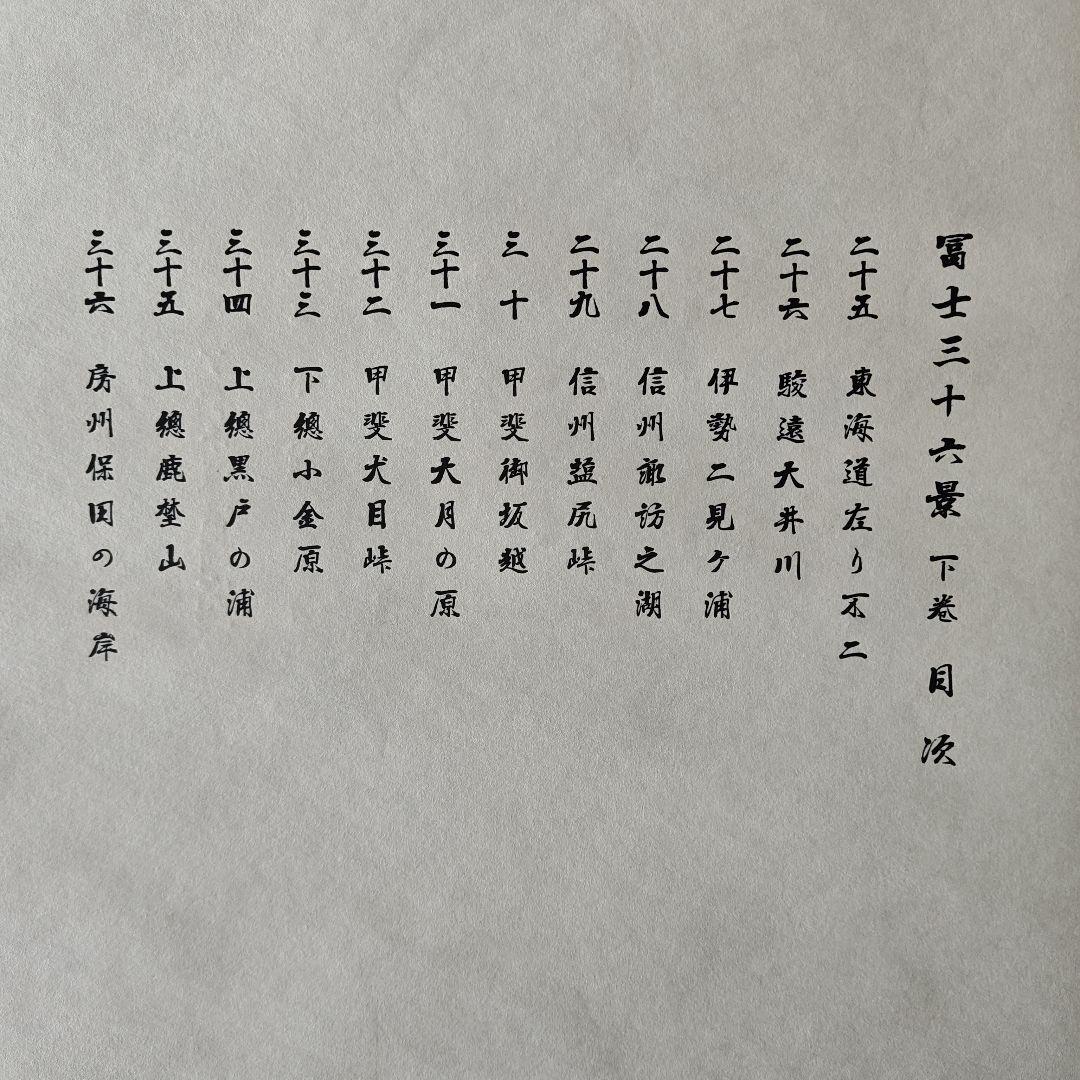 冨士三十六景 下卷 目次
二十五 東海道左り不二
二十六 駿遠大井川
二十七 伊勢二見ケ浦
二十八 信州諏訪之湖
二十九 信州塩尻峠
三十 甲斐御坂越
三十一 甲斐大月の原
三十二 甲斐犬目峠
三十三 下總小金原
三十四 上總黒戸の浦
三十五 上總鹿埜山
三十六 房州保田の海岸